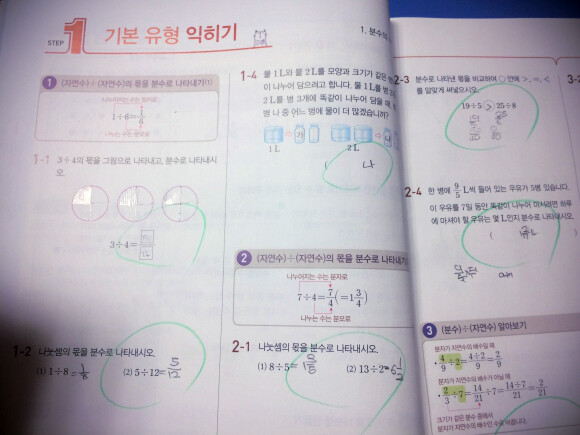 STEP 1 기본 유형 익히기
1 (자연수)÷(자연수)의 몫을 분수로 나타내기(1)
나누어지는 수는 분자로
1÷6=1/6
나누는 수는 분모로
1-1 3÷4의 몫을 그림으로 나타내고, 분수로 나타내시
오.
3÷4=
1-2 나눗셈의 몫을 분수로 나타내시오.
(1) 1÷8=1/8 (2) 5÷12=5/12
1-4 물 1L와 물 2L를 모양과 크기가 같은
이 나누어 담으려고 합니다. 물 1L를 병
2L를 병 3개에 똑같이 나누어 담을 때
병 나 중 어느 병에 물이 더 많겠습니까?
가 나
1L 2L
( 나
2 (자연수)÷(자연수)의 몫을 분수로 나타내기
나누어지는 수는 분자로
7÷4=7/4(=1 3/4)
나누는 수는 분모로
2-1 나눗셈의 몫을 분수로 나타내시오.
(1) 8÷5= (2) 13÷2=6 1/2
1. 분수의
2-3 분수로 나타낸 몫을 비교하여 ○ 안에 >, =, <
를 알맞게 써넣으시오.
19÷5 > 25÷8
2-4 한 병에 9/5 L씩 들어 있는 우유가 5병 있습니다.
이 우유를 7일 동안 똑같이 나누어 마시려면 하루
에 마셔야 할 우유는 몇 L인지 분수로 나타내시오.
(
3 (분수)÷(자연수) 알아보기
분자가 자연수의 배수일 때
4/9÷2=4÷2/9=2/9
분자가 자연수의 배수가 아닐 때
2/3÷7=14/21÷7=14÷7/21=2/21
크기가 같은 분수 중에서
분자가 자연수의 배수인 수로 바꿉니다.
3-2